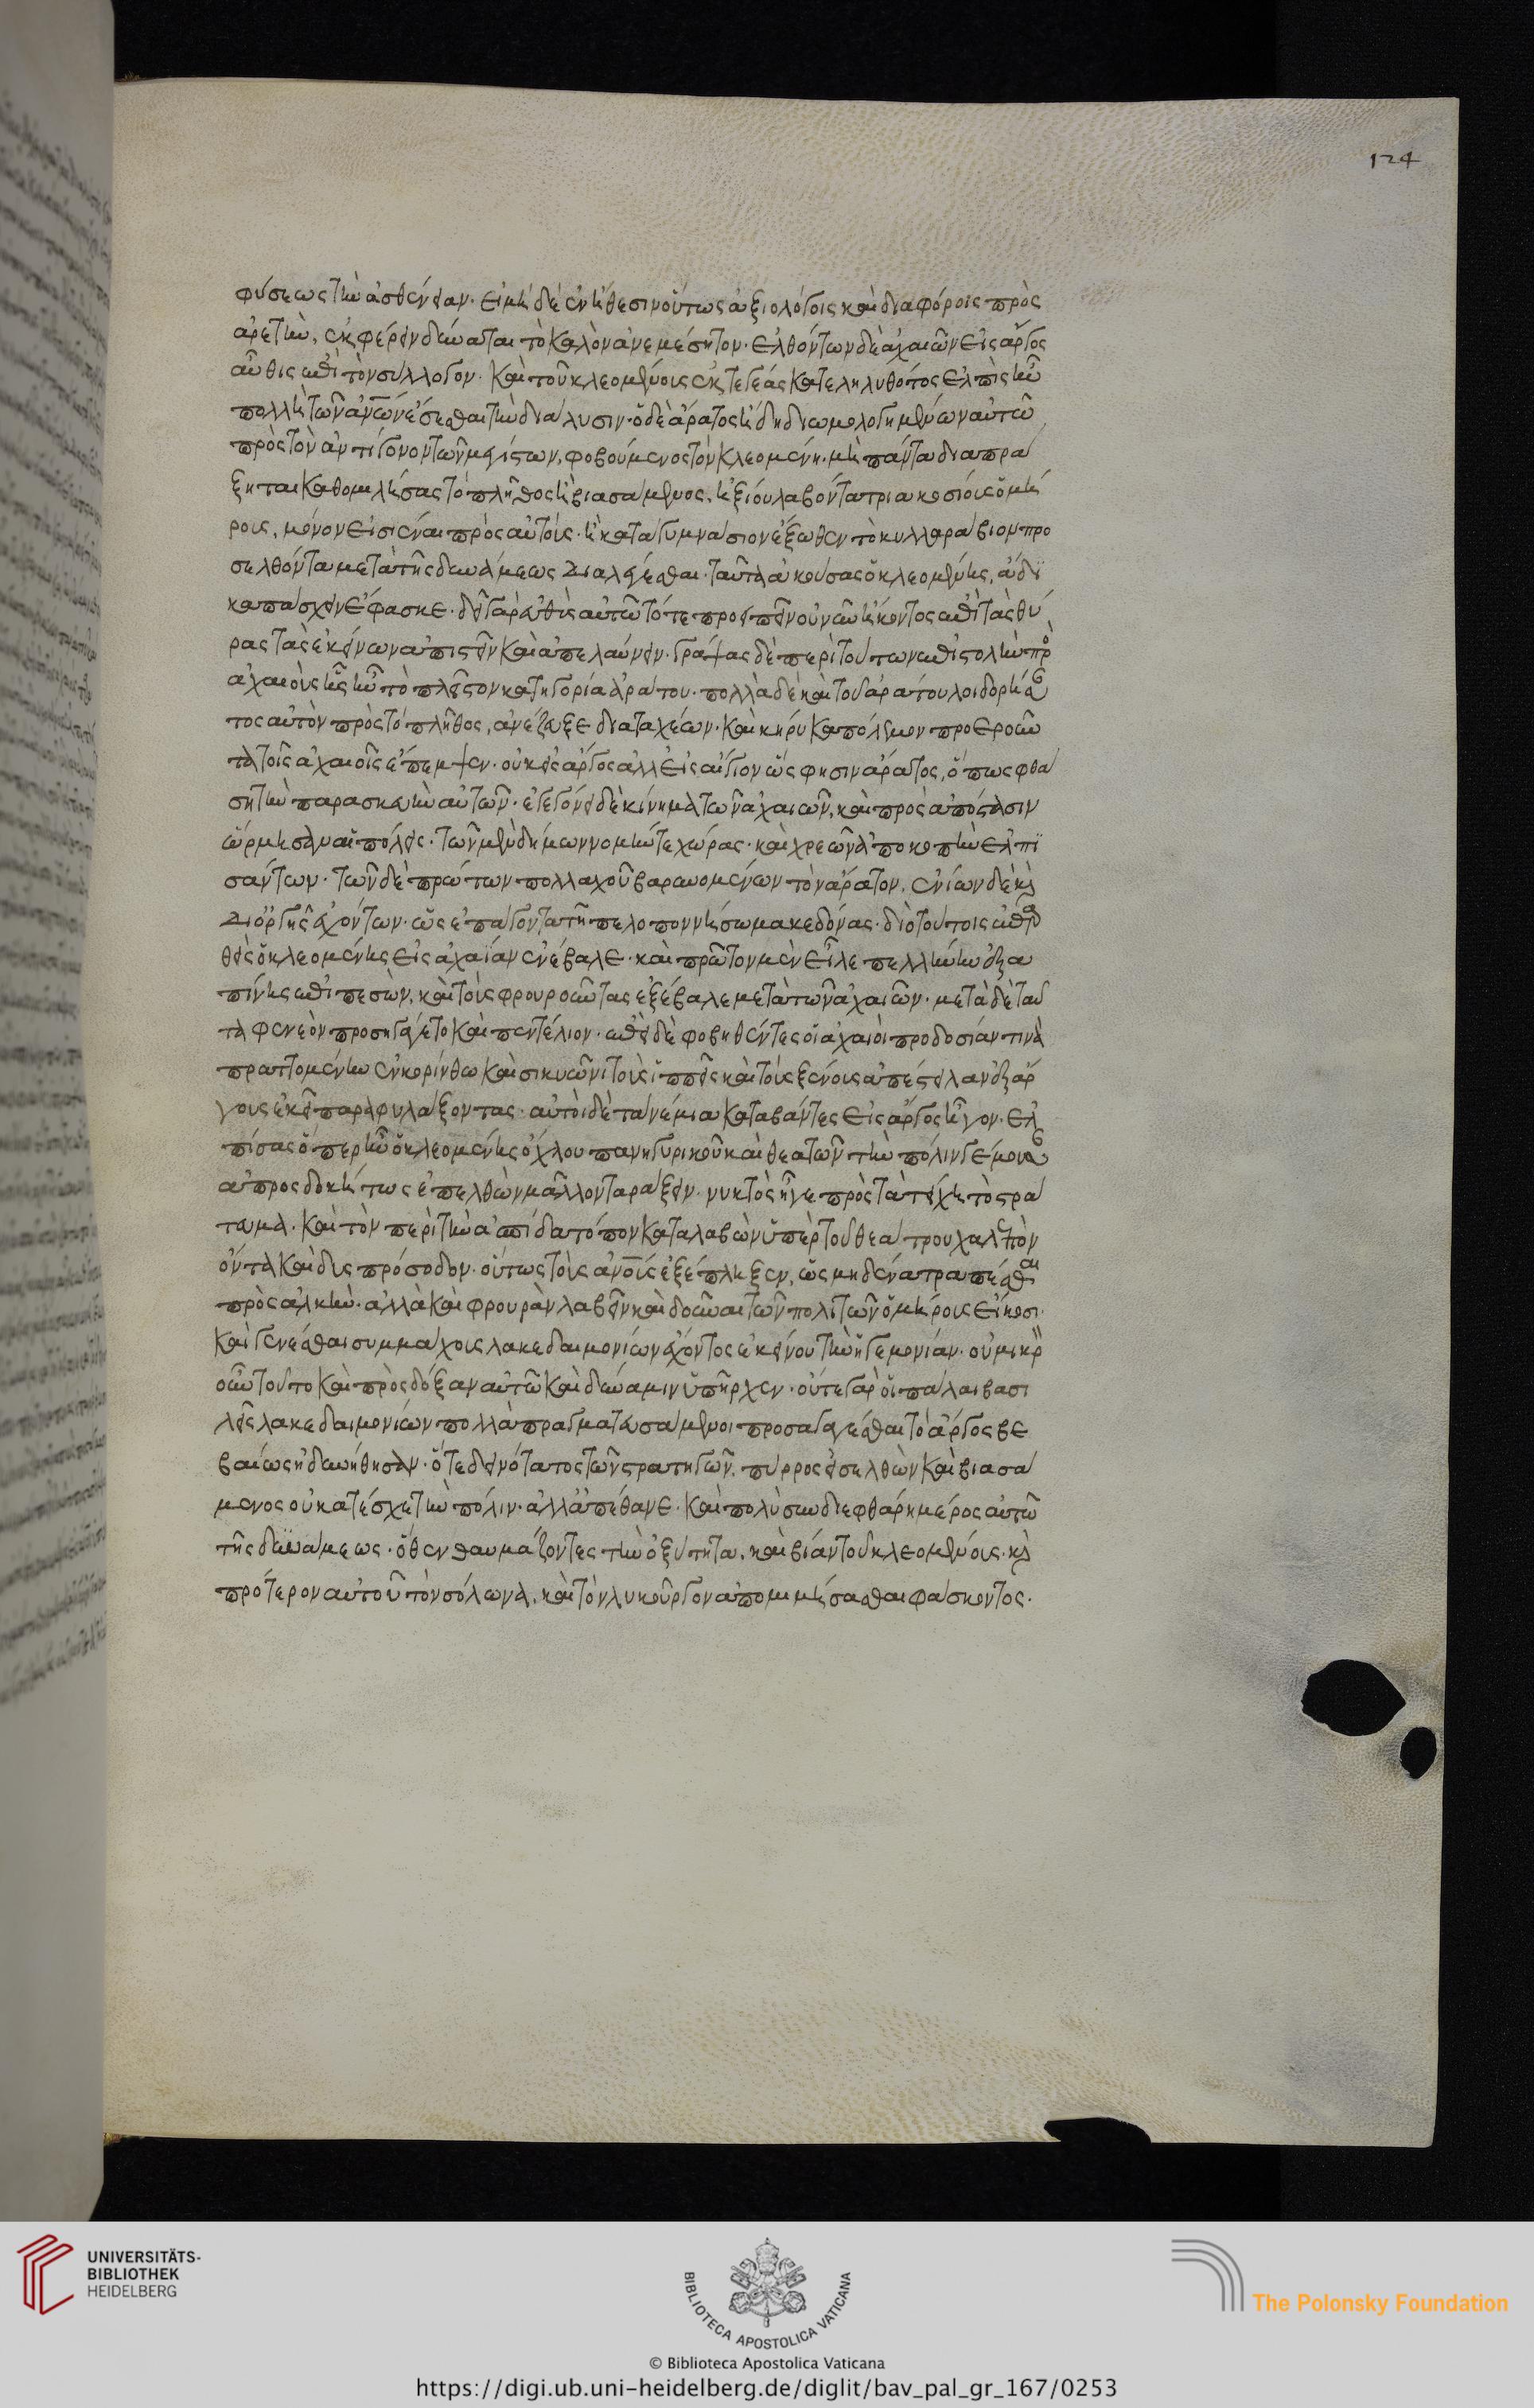 124
φύσεως τὴν ἀσθένειαν· εἰ μὴ δὲ ἐν ἤθεσιν οὕτως ἀξιολόγοις καὶ διαφόροις πρὸς
ἀρετὴν, ἐκφέρειν δύναται τὸ καλὸν ἀνεμέσητον· ἐλθόντων δὲ ἀχαιῶν εἰς ἄργος
αὖθις ἐπὶ τὸν σύλλογον· καὶ τοῦ κλεομένους ἐκ τεγέας κατεληλυθότος ἐλπὶς ἦν
πολλὴ τῶν ἀνων ἔσεσθαι τὴν διάλυσιν· ὁ δὲ ἄρατος ἤδη διωμολογημένων αὐτῶ
πρὸς τὸν ἀντίγονον τῶν μεγίστων, φοβούμενος τὸν κλεομένη· μὴ πάντα διαπρά
ξηται καθομιλήσας τὸ πλῆθος ἢ βιασάμενος, ἠξίου λαβόντα τριακοσίους ὁμή
ρους, μόνον εἰσιέναι πρὸς αὐτούς· ἢ κατὰ γυμνάσιον ἔξωθεν τὸ κυλλαράβιον προ
σελθόντα μετὰ τῆς δυνάμεως διαλέγεσθαι· ταῦτα ἀκούσας ὁ κλεομένης, ἄδι
κα πάσχειν ἔφασκε· δεῖ γὰρ εὐθὺς αὐτῶ τότε προειπεῖν οὐ νῦν ἥκοντος ἐπὶ τὰς θύ
ρας τὰς ἐκείνων ἀπιστεῖν καὶ ἀπελαύνειν· γράψας δὲ περὶ τούτων ἐπιστολὴν πρ
ἀχαιοὺς ἧς ἦν τὸ πλεῖστον κατηγορία ἀράτου· πολλὰ δὲ καὶ τοῦ ἀράτου λοιδορήσαν
τος αὐτὸν πρὸς τὸ πλῆθος, ἀνέζευξε διαταχέων· καὶ κήρυκα πόλεμον προεροῦν
τα τοῖς ἀχαιοῖς ἔπεμψεν· οὐκ εἰς ἄργος ἀλλ εἰς αἴγιον ὥς φησιν ἄρατος, ὅπως φθά
ση τὴν παρασκευὴν αὐτῶν· ἐγεγόνει δὲ κίνημα τῶν ἀχαιῶν, καὶ πρὸς ἀπόστασιν
ὥρμησαν αἱ πόλεις· τῶν μὲν δήμων νομήν τε χώρας· καὶ χρεῶν ἀποκοπὴν ἐλπι
σάντων· τῶν δὲ πρώτων πολλαχοῦ βαρυνομένων τὸν ἄρατον, ἐνίων δὲ κ
διοργῆς ἐχόντων· ὡς ἐπάγοντα τῆ πελοποννήσω μακεδόνας· διὸ τούτοις ἐπαρ
θεὶς ὁ κλεομένης εἰς ἀχαΐαν ἐνέβαλε· καὶ πρῶτον μὲν εἷλε πελλήνην ἐξα
πίνης ἐπιπεσὼν, καὶ τοὺς φρουροῦντας ἐξέβαλε μετὰ τῶν ἀχαιῶν· μετὰ δὲ ταῦ
τα φενεὸν προσηγάγετο καὶ πεντέλιον· ἐπεὶ δὲ φοβηθέντες οἱ ἀχαιοὶ προδοσίαν τινὰ
πραττομένην ἐν κορίνθω καὶ σικυῶνι τοὺς ἱππεῖς καὶ τοὺς ξένους ἀπέστειλαν ἐξ ἄρ
γους ἐκεῖ παραφυλάξοντας· αὐτοὶ δὲ τὰ νέμια καταβάντες εἰς ἄργος ἦγον· ἐλ
πίσας ὅπερ ἦν ὁ κλεομένης ὄχλου πανηγυρικοῦ καὶ θεατῶν τὴν πόλιν γέμουσαν
ἀπροσδοκήτως ἐπελθὼν μᾶλλον ταράξειν· νυκτὸς ἦγε πρὸς τὰ τείχη τὸ στρά
τευμα· καὶ τὸν περὶ τὴν ἀσπίδα τόπον καταλαβὼν ὑπὲρ τοῦ θεάτρου χαλεπὸν
ὄντα καὶ δυσπρόσοδον· οὕτως τοὺς ἀνους ἐξέπληξεν, ὡς μηδένα τραπέσθαι
πρὸς ἀλκὴν· ἀλλὰ καὶ φρουρὰν λαβεῖν καὶ δοῦναι τῶν πολιτῶν ὁμήρους εἴκοσι·
καὶ γενέσθαι συμμάχους λακεδαιμονίων ἔχοντος ἐκείνου τὴν ἡγεμονίαν· οὐ μικρ
οὖν τοῦτο καὶ πρὸς δόξαν αὐτῶ καὶ δύναμιν ὑπῆρχεν· οὔτε γὰρ οἱ πάλαι βασι
λεῖς λακεδαιμονίων πολλὰ πραγματευσάμενοι προσαγαγέσθαι τὸ ἄργος βε
βαίως ἠδυνήθησαν· ὅ τε δεινότατος τῶν στρατηγῶν, πύρρος εἰσελθὼν καὶ βιασά
μενος οὐ κατέσχε τὴν πόλιν· ἀλλ ἀπέθανε· καὶ πολὺ συνδιεφθάρη μέρος αὐτῶ
τῆς δυνάμεως· ὅθεν θαυμάζοντες τὴν ὀξύτητα, καὶ βίαν τοῦ κλεομένους· κ
πρότερον αὐτοῦ τὸν σόλωνα, καὶ τὸν λυκοῦργον ἀπομιμήσασθαι φάσκοντος·
UNIVERSITÄTS-
BIBLIOTHEK
HEIDELBERG
BIBLIOTECA APOSTOLICA VATICANA
The Polonsky Foundation
© Biblioteca Apostolica Vaticana
https://digi.ub.uni-heidelberg.de/diglit/bav_pal_gr_167/0253